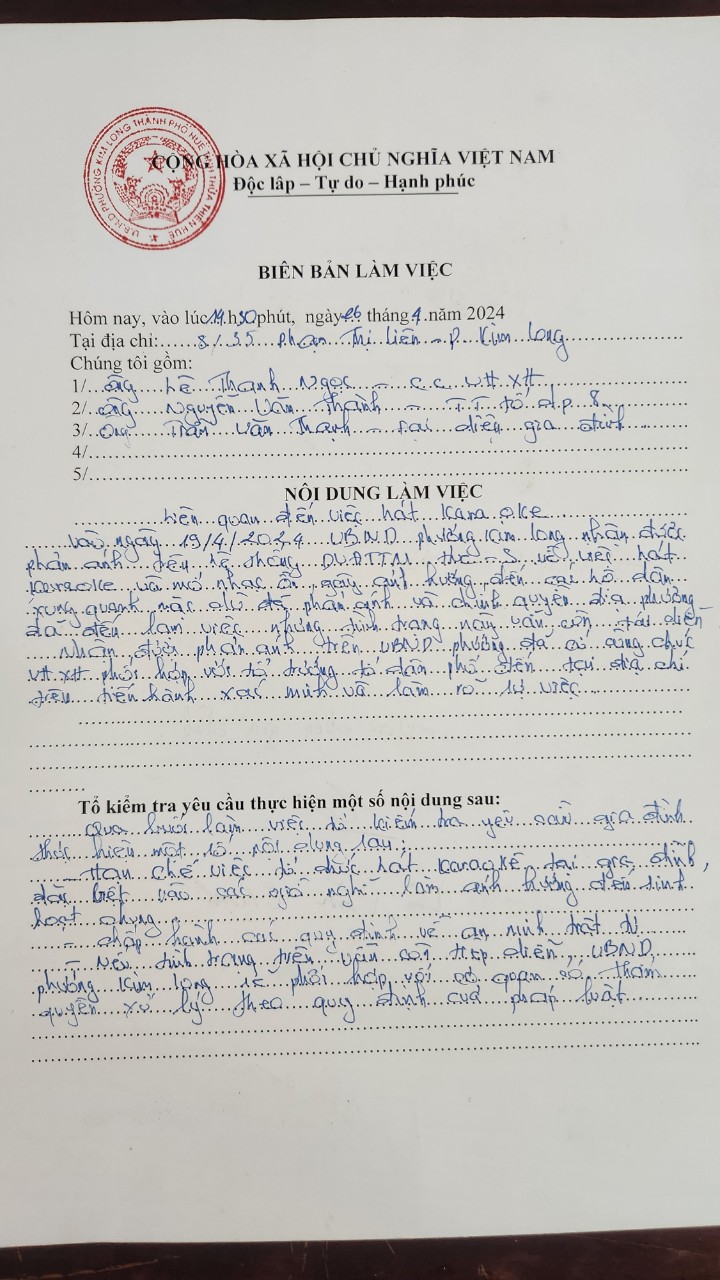 U.B.N.D PHƯỜNG KIM LONG THÀNH PHỐ HUẾ TỈNH THỪA THIÊN HUẾ
CỘNG HÒA XÃ HỘI CHỦ NGHĨA VIỆT NAM
Độc lập – Tự do – Hạnh phúc
BIÊN BẢN LÀM VIỆC
Hôm nay, vào lúc 14 h 30 phút, ngày 26 tháng 4 năm 2024
Tại địa chỉ: 8/35 Phạm Thị Liên - P. Kim Long
Chúng tôi gồm:
1/ Ông Lê Thanh Ngọc - C.C VH.XH
2/ Ông Nguyễn Văn Thành - T.T tổ d.p 8
3/ Ông Trần Văn Thạnh - Đại diện gia đình
4/
5/
NỘI DUNG LÀM VIỆC
Liên quan đến việc hát karaoke
Vào ngày 19/4/2024 UBND phường Kim Long nhận được
phản ánh trên hệ thống DVĐTTM về việc hát
karaoke và mở nhạc ồn gây ảnh hưởng đến các hộ dân
xung quanh mặc dù đã phản ánh và chính quyền địa phương
đã đến làm việc nhưng tình trạng này vẫn còn tái diễn
Nhận được phản ánh trên UBND phường đã cử công chức
VH.XH phối hợp với tổ trưởng tổ dân phố đến tại địa chỉ
trên tiến hành xác minh và làm rõ sự việc
Tổ kiểm tra yêu cầu thực hiện một số nội dung sau:
Qua buổi làm việc tổ kiểm tra yêu cầu gia đình
thực hiện một số nội dung sau:
- Hạn chế việc tổ chức hát karaoke tại gia đình,
đặc biệt vào các giờ nghỉ làm ảnh hưởng đến sinh
hoạt chung.
- Chấp hành các quy định về an ninh trật tự
- Nếu tình trạng trên vẫn còn tiếp diễn, UBND
phường Kim Long sẽ phối hợp với cơ quan có thẩm
quyền xử lý theo quy định của pháp luật